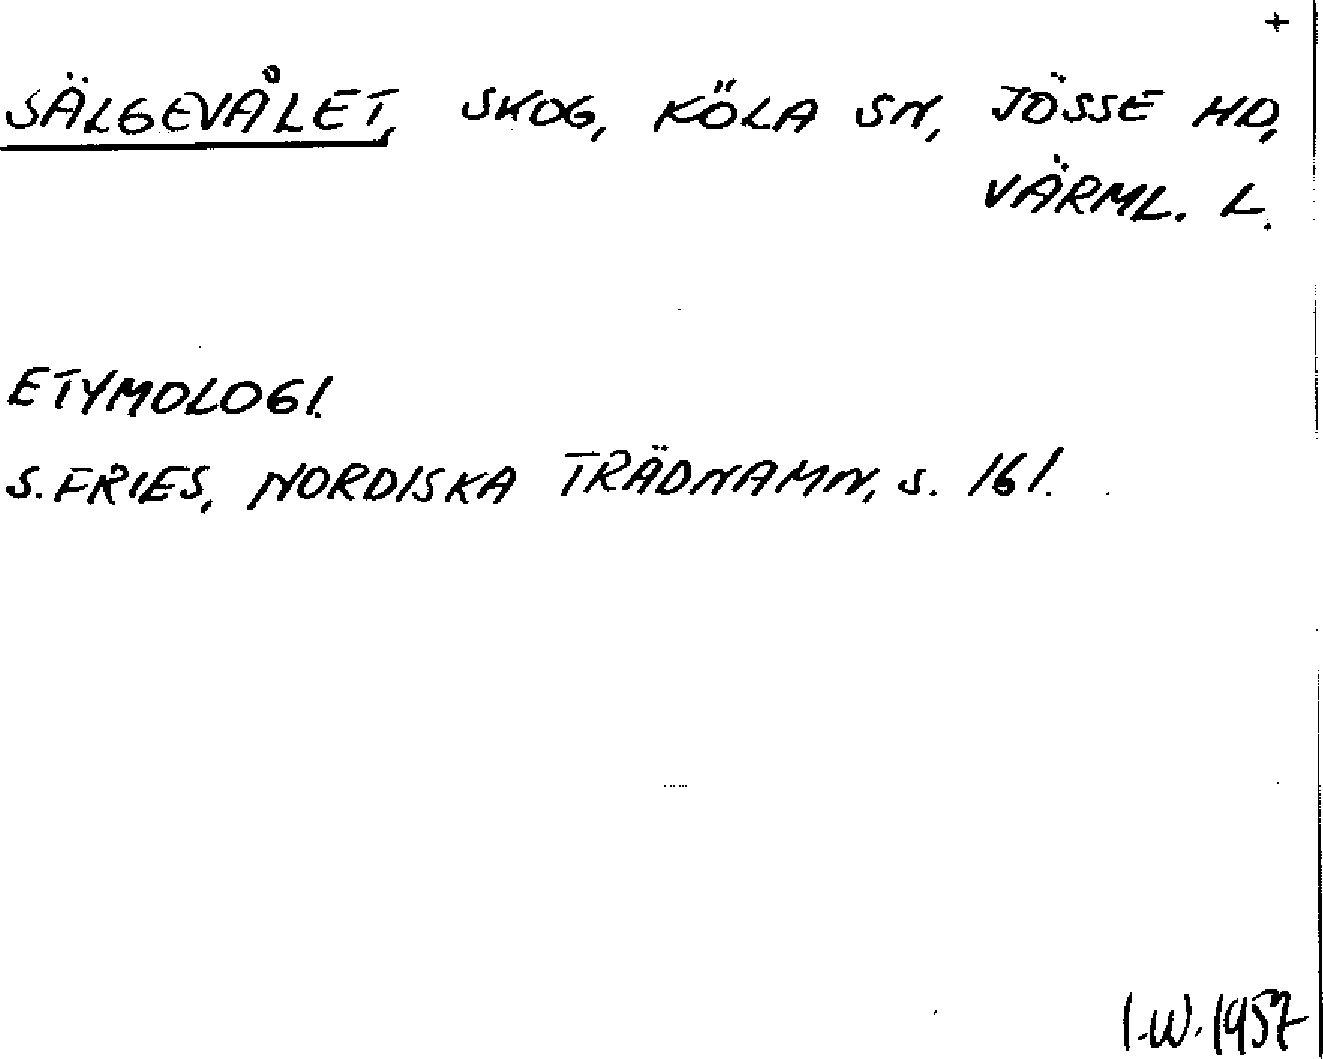 +
SÄLGEVÅLET, SKOG, KÖLA SN, JÖSSE HD,
VÄRML. L.
ETYMOLOGI.
S. FRIES, NORDISKA TRÄDNAMN, S. 161.
I.W. 1957